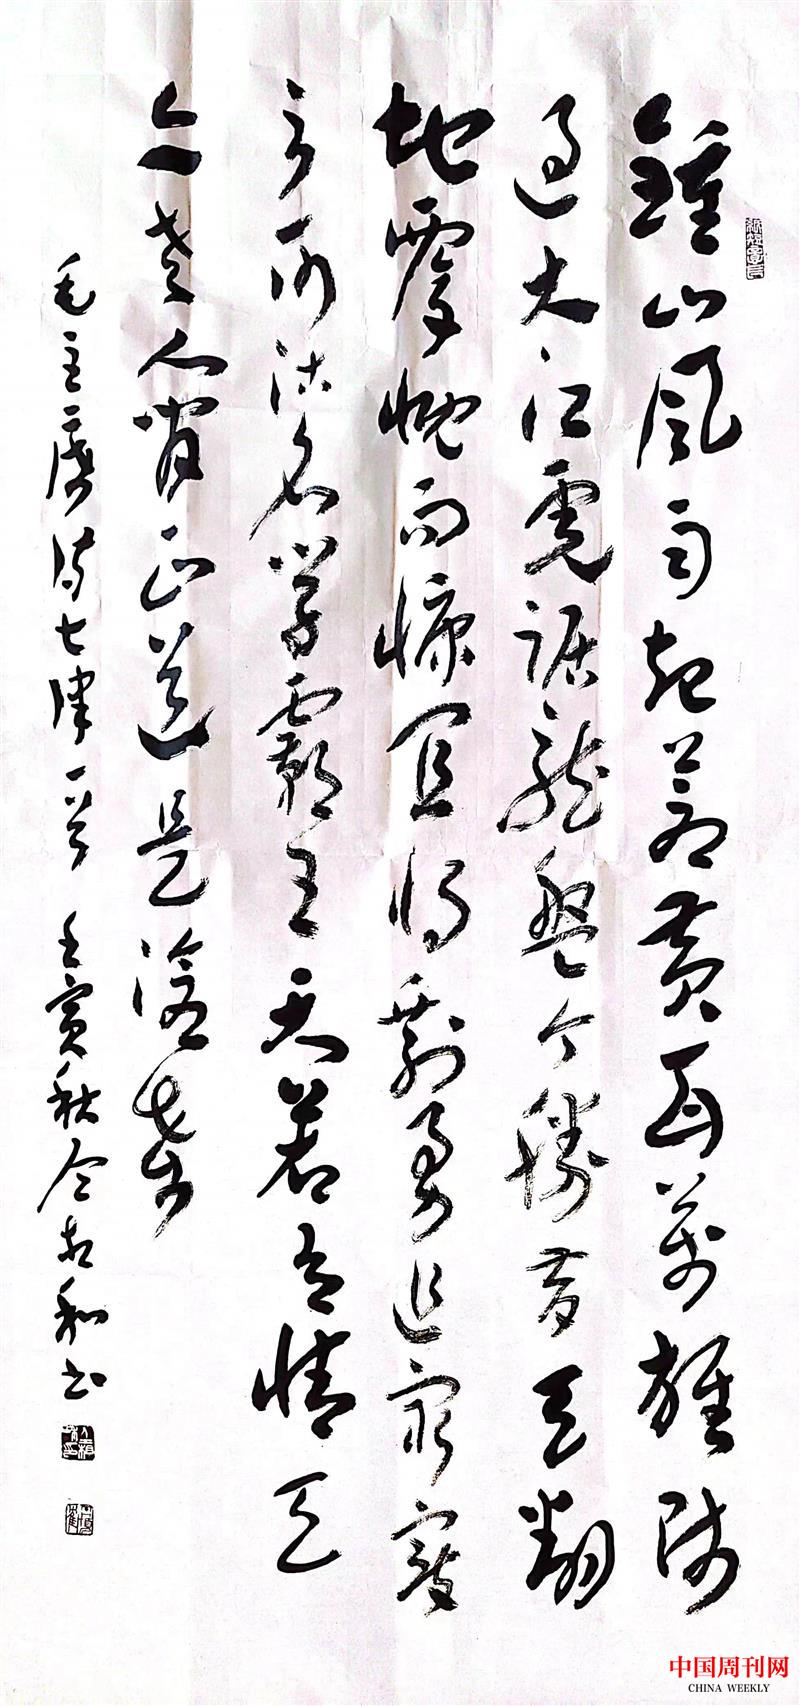 鍾山风雨起蒼黄百萬雄师
过大江虎踞龍盤今勝昔天翻
地覆慨而慷宜将剩勇追窮寇
不可沽名学霸王天若有情天
亦老人间正道是滄桑
毛主席诗七律一首 壬寅秋 和书
中国周刊网
CHINA WEEKLY